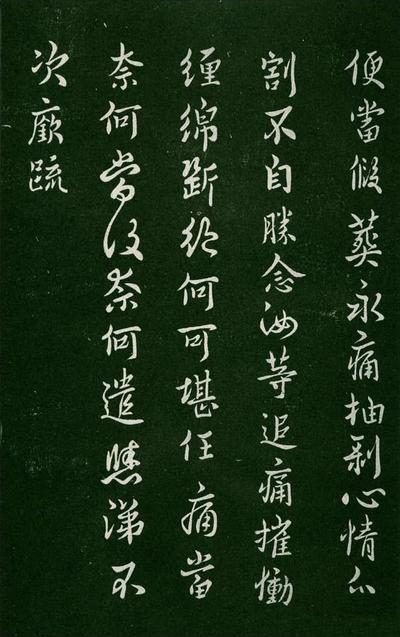 便當假葬永痛抽剝心情分
割不自勝念汝等追痛摧慟
纏綿斷絕何可堪任痛當
奈何當復奈何遣慜涕不
次獻疏